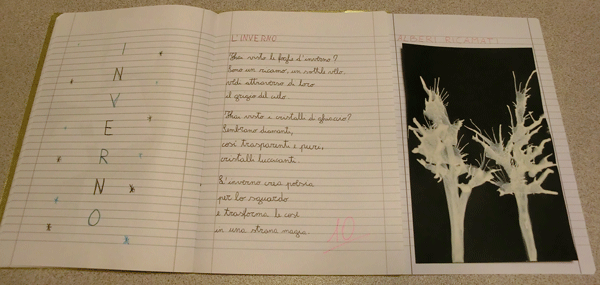 I
N
V
E
R
N
O
L'INVERNO
Hai visto le foglie d'inverno?
Sono un ricamo, un sottile velo.
vedi attraverso di loro
il grigio del cielo.
Hai visto i cristalli di ghiaccio?
Sembrano diamanti,
così trasparenti e puri,
cristalli luccicanti.
L'inverno crea poesia
per lo sguardo
e trasforma le cose
in una strana magia
10
ALBERI RICAMATI